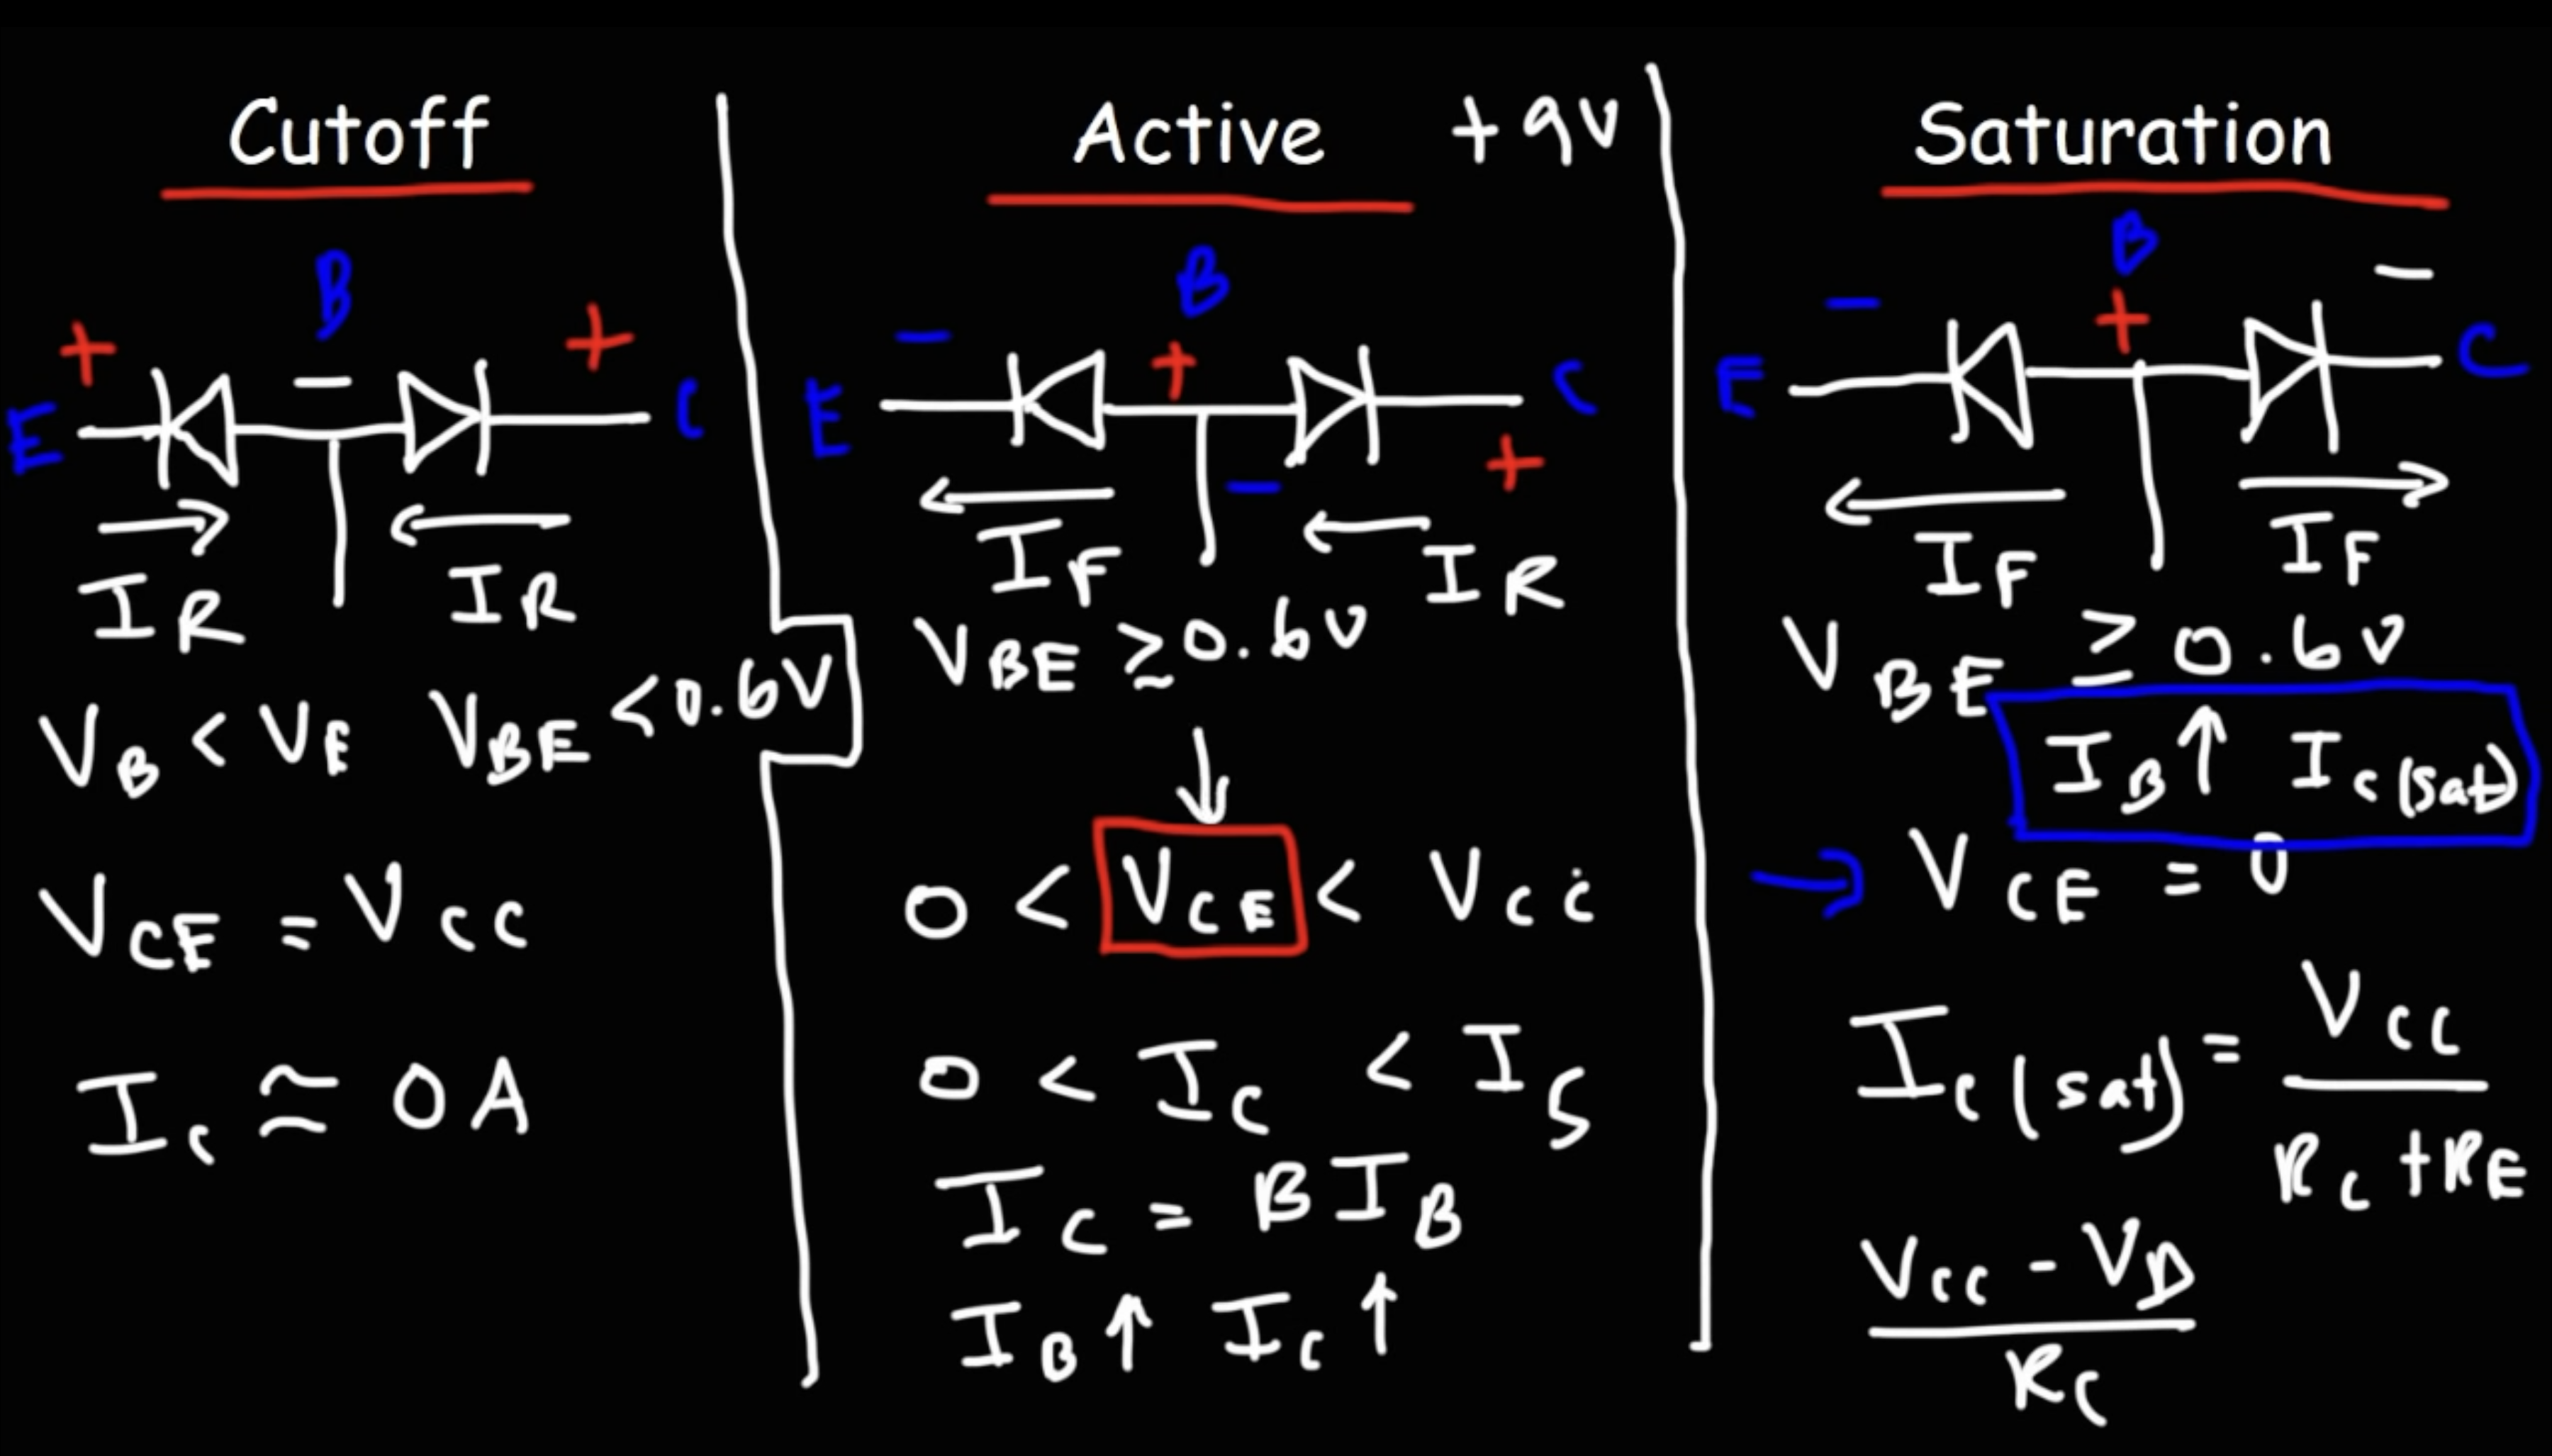 Cutoff
B
+ +
E − C
I_R I_R
V_B < V_E V_BE < 0.6V
V_CE = V_CC
I_C ≈ 0 A
Active +9V
B
− +
E C
− +
I_F I_R
V_BE ≥ 0.6V
↓
0 < V_CE < V_CC
0 < I_C < I_S
I_C = B I_B
I_B ↑ I_C ↑
Saturation
B −
− +
E C
I_F I_F
V_BE ≥ 0.6V
I_B ↑ I_C(sat)
→ V_CE = 0
I_C(sat) = V_CC / (R_C + R_E)
V_CC − V_D
R_C